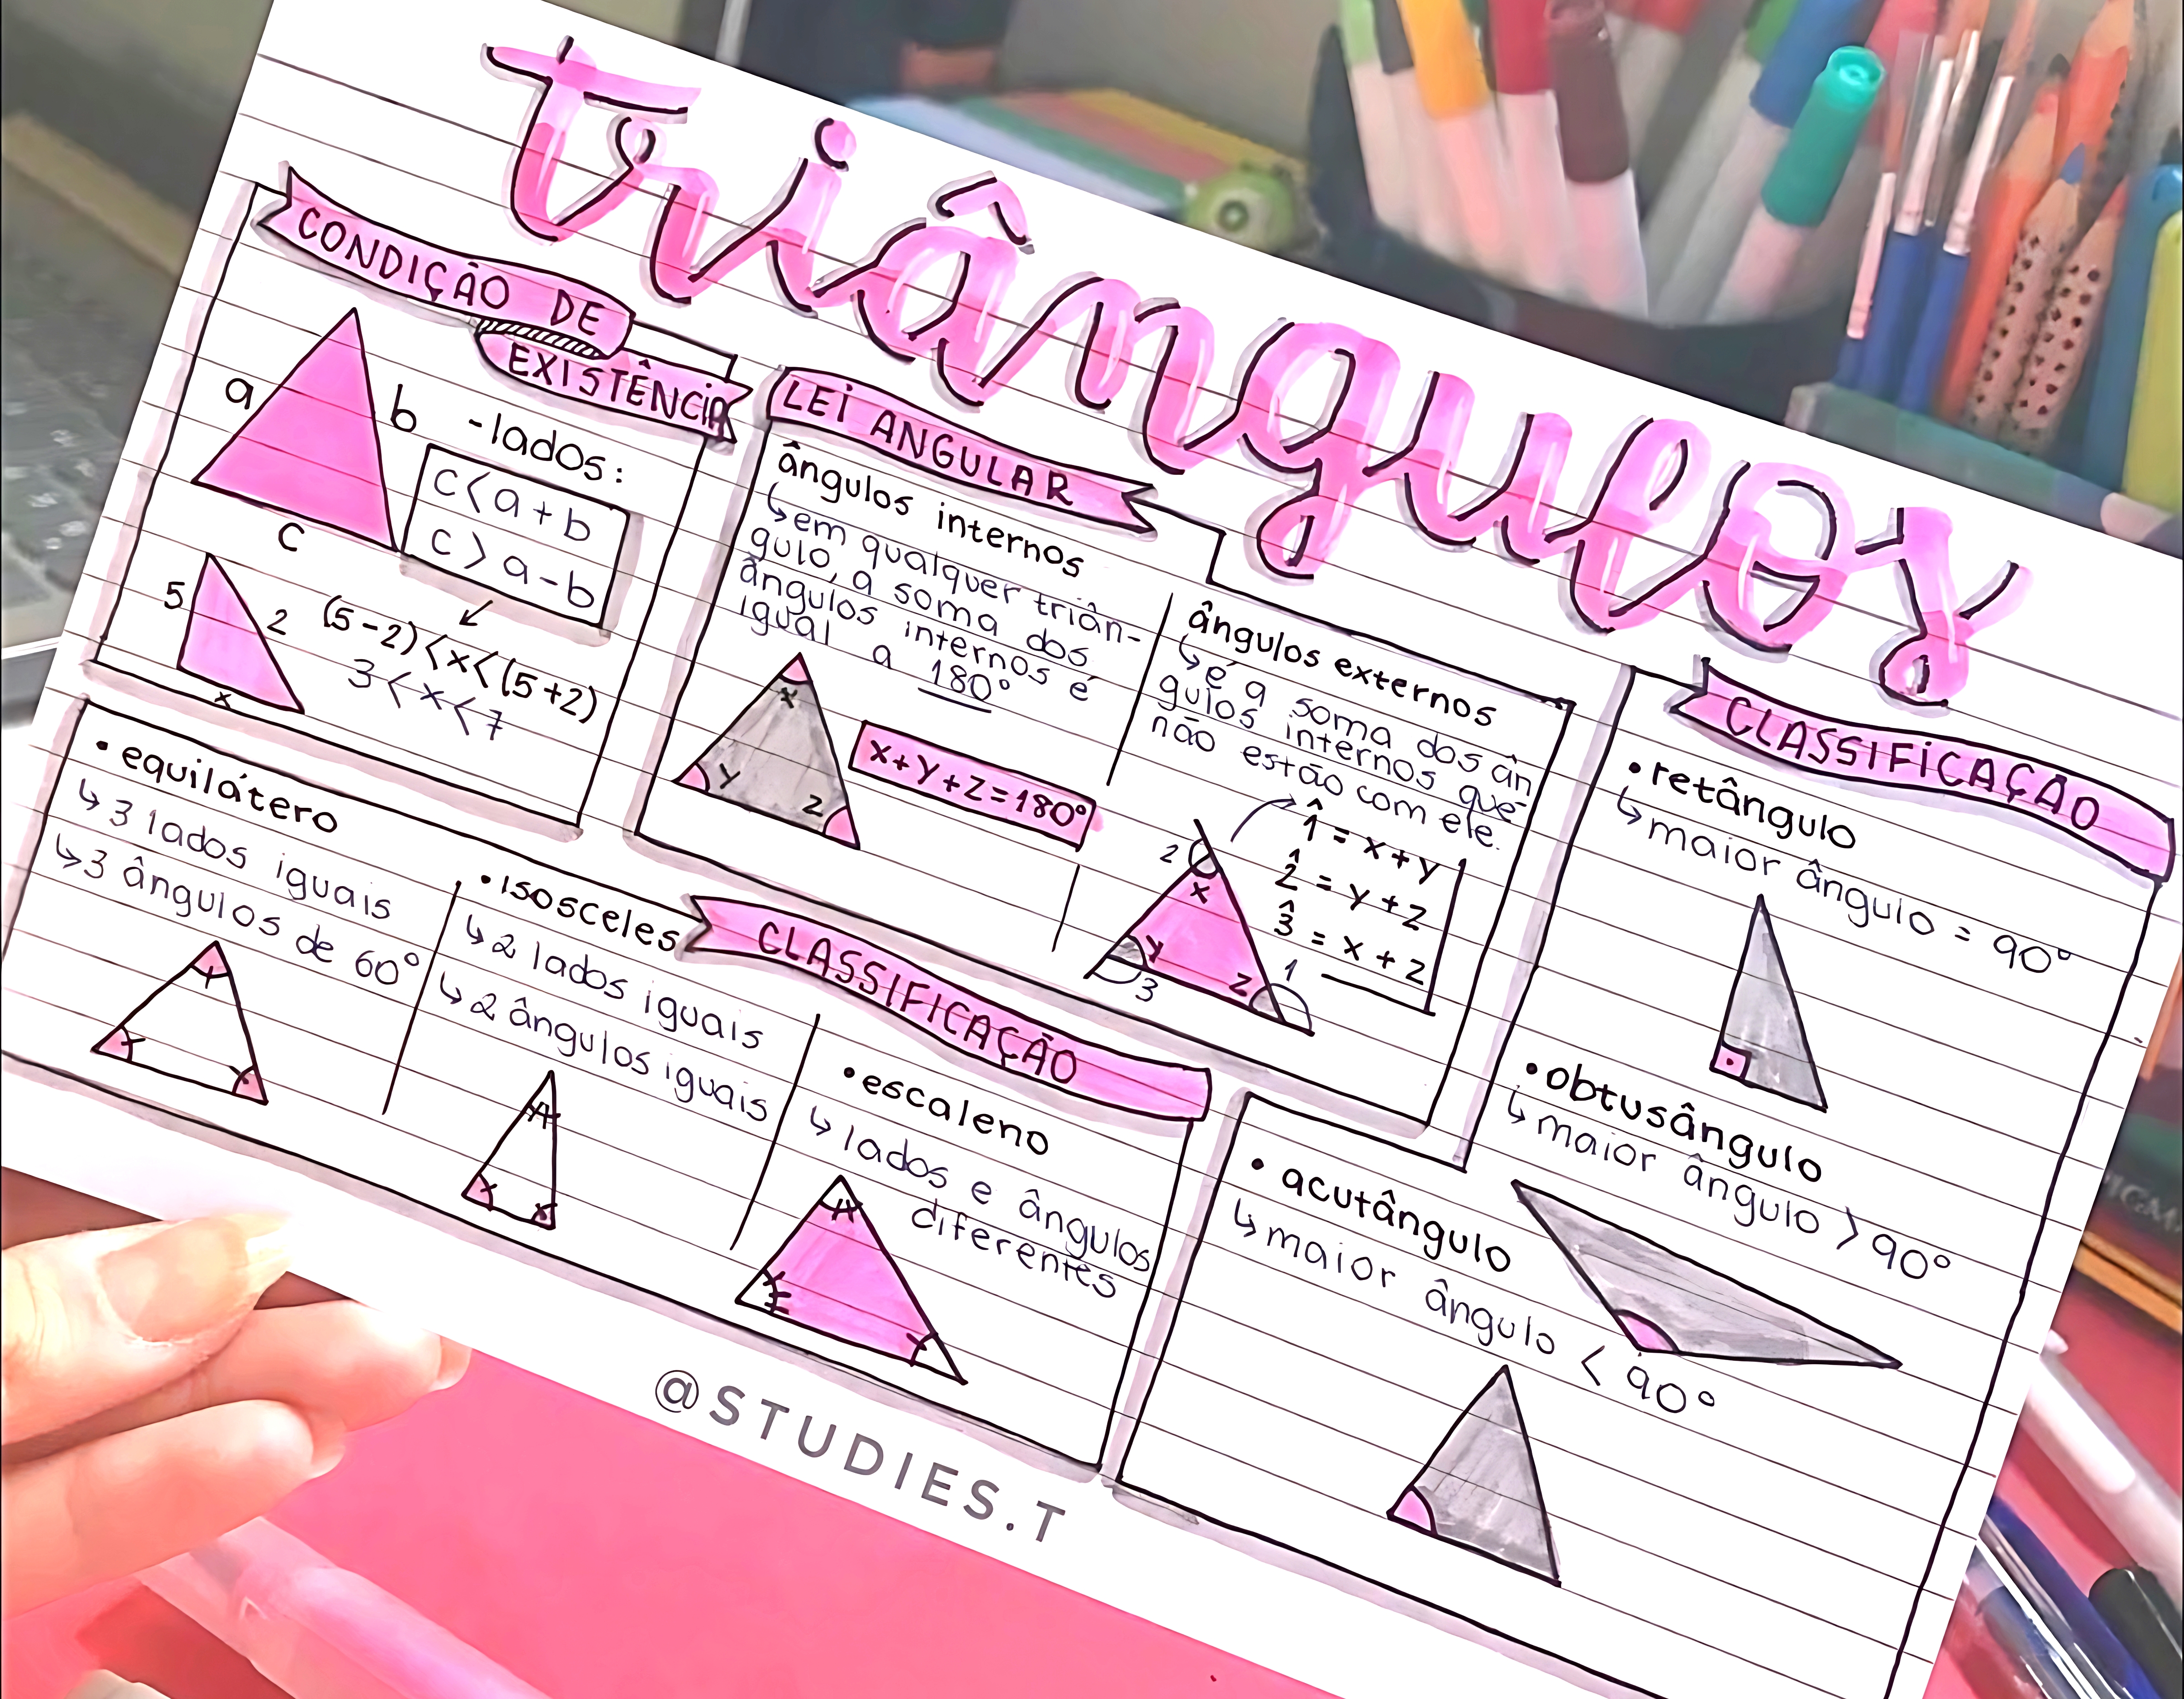 triângulos
CONDIÇÃO DE
EXISTÊNCIA
a
b
c
-lados:
c < a + b
c > a - b
5
2
x
(5-2) < x < (5+2)
3 < x < 7
LEI ANGULAR
ângulos internos
↳ em qualquer triân-
gulo, a soma dos
ângulos internos é
igual a 180°
x
y
z
x+y+z=180°
ângulos externos
↳ é a soma dos ân
gulos internos que
não estão com ele.
1̂ = x+y
2̂ = y+z
3̂ = x+z
2
x
y
3
z
1
CLASSIFICAÇÃO
• equilátero
↳ 3 lados iguais
↳ 3 ângulos de 60°
• isosceles
↳ 2 lados iguais
↳ 2 ângulos iguais
• escaleno
↳ lados e ângulos
diferentes
CLASSIFICAÇÃO
• retângulo
↳ maior ângulo = 90°
• obtusângulo
↳ maior ângulo > 90°
• acutângulo
↳ maior ângulo < 90°
@STUDIES.T